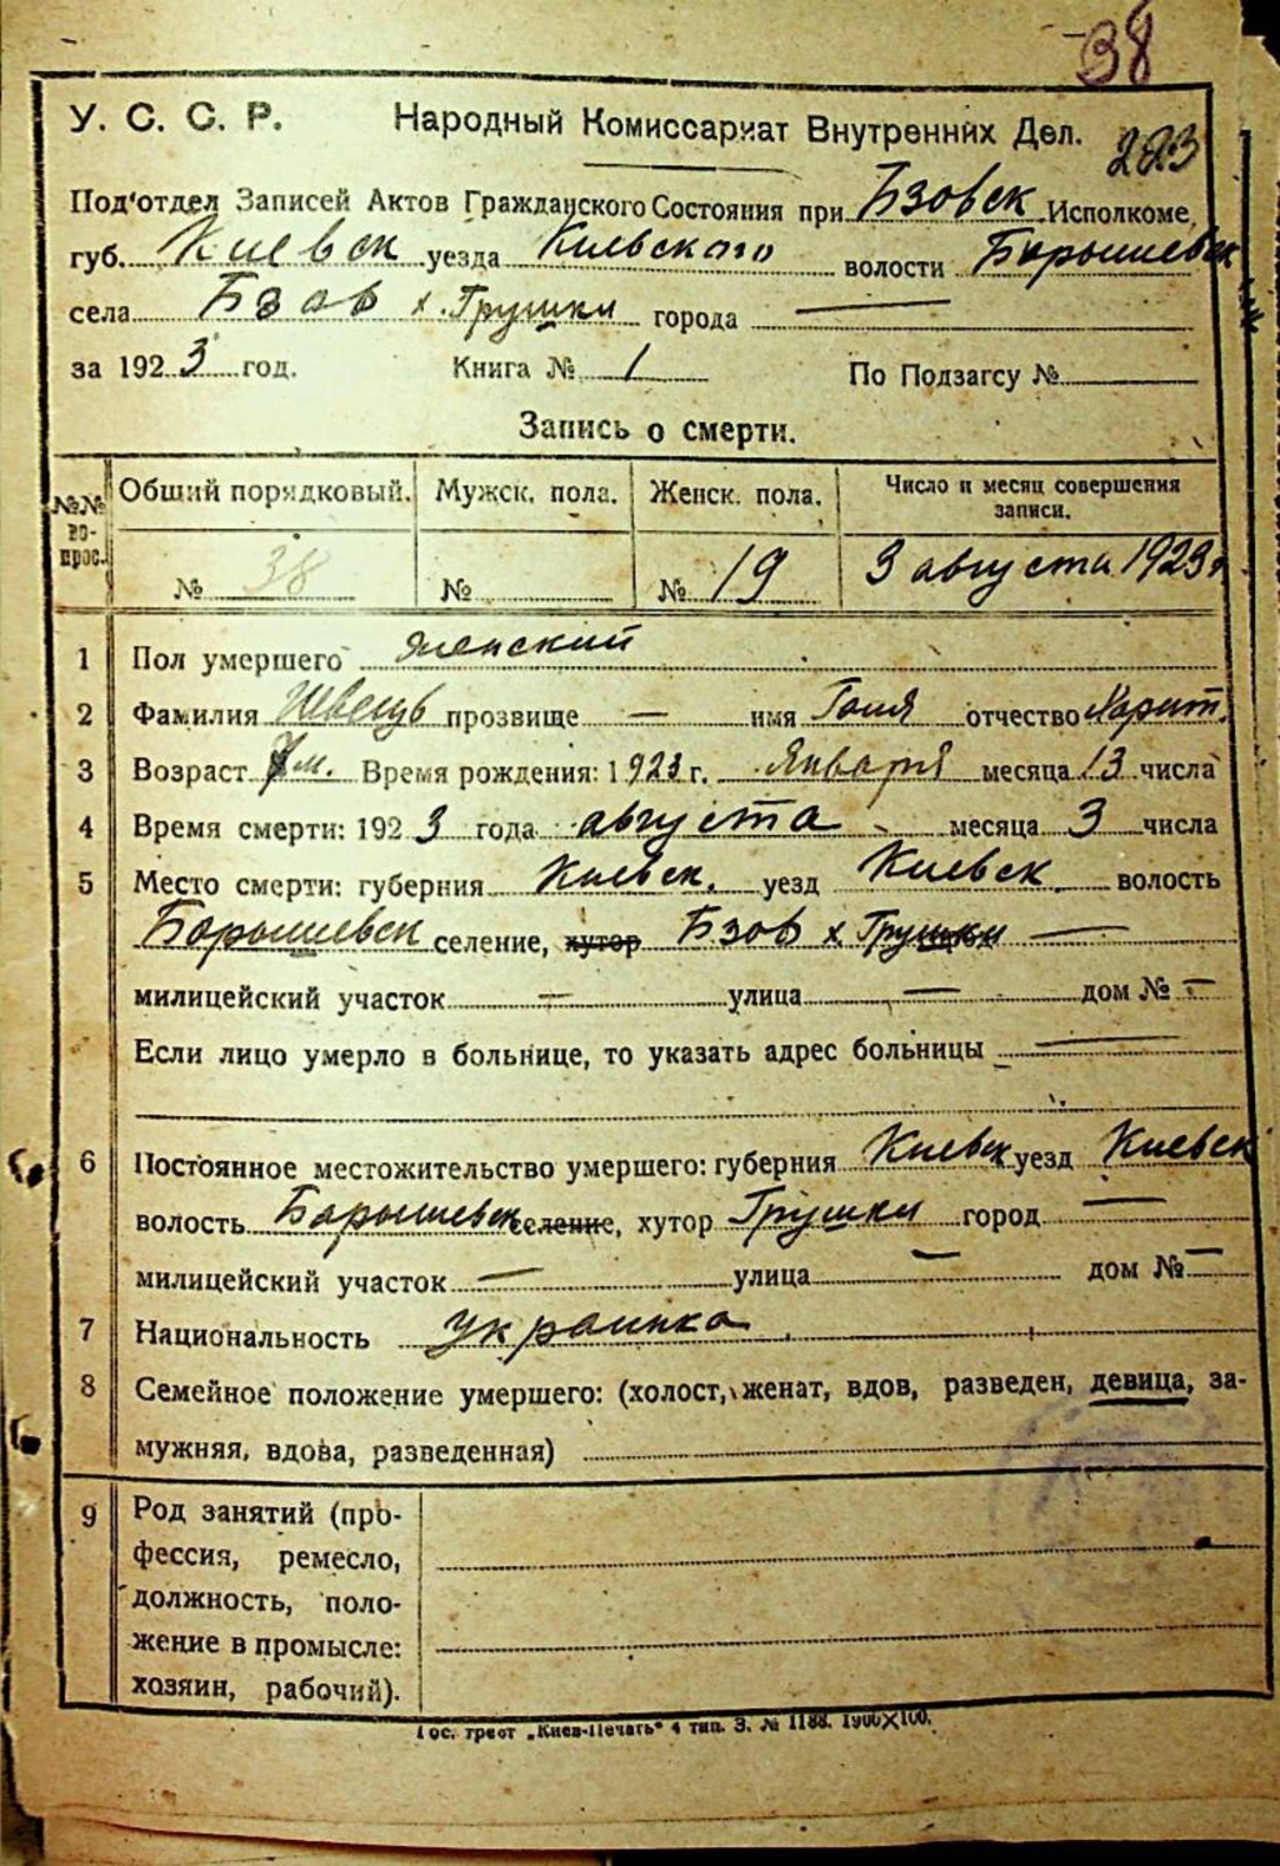 38
У. С. С. Р. Народный Комиссариат Внутренних Дел. 223
Под'отдел Записей Актов Гражданского Состояния при Бзовск Исполкоме,
губ. Киевск уезда Киевского волости Борышевск
села Бзов х. Грушки города —
за 1923 год. Книга № 1 По Подзагсу №
Запись о смерти.
№№ вопрос. Общий порядковый. Мужск. пола. Женск. пола. Число и месяц совершения записи.
№ 38 № № 19 3 августа 1923 г
1 Пол умершего женский
2 Фамилия Швець прозвище — имя Галя отчество Харит.
3 Возраст 7 м. Время рождения: 1923 г. Января месяца 13 числа
4 Время смерти: 1923 года августа месяца 3 числа
5 Место смерти: губерния Киевск. уезд Киевск. волость
Борышевск селение, хутор Бзов х Грушки —
милицейский участок — улица — дом № —
Если лицо умерло в больнице, то указать адрес больницы —
6 Постоянное местожительство умершего: губерния Киевск уезд Киевск
волость Борышевск селение, хутор Грушки город —
милицейский участок — улица — дом № —
7 Национальность украинка
8 Семейное положение умершего: (холост, женат, вдов, разведен, девица, за-
мужняя, вдова, разведенная)
9 Род занятий (про-
фессия, ремесло,
должность, поло-
жение в промысле:
хозяин, рабочий).
Гос. трест „Киев-Печать" 4 тип. З. № 1188. 1900×100.